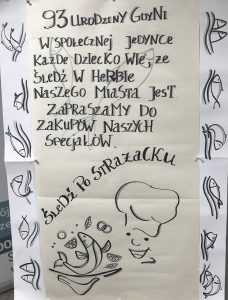 93 URODZINY GDYNI
W SPOŁECZNEJ JEDYNCE
KAŻDE DZIECKO WIE, ŻE
ŚLEDŹ W HERBIE
NASZEGO MIASTA JEST
ZAPRASZAMY DO
ZAKUPÓW NASZYCH
SPECJAŁÓW
ŚLEDŹ PO STRAŻACKU